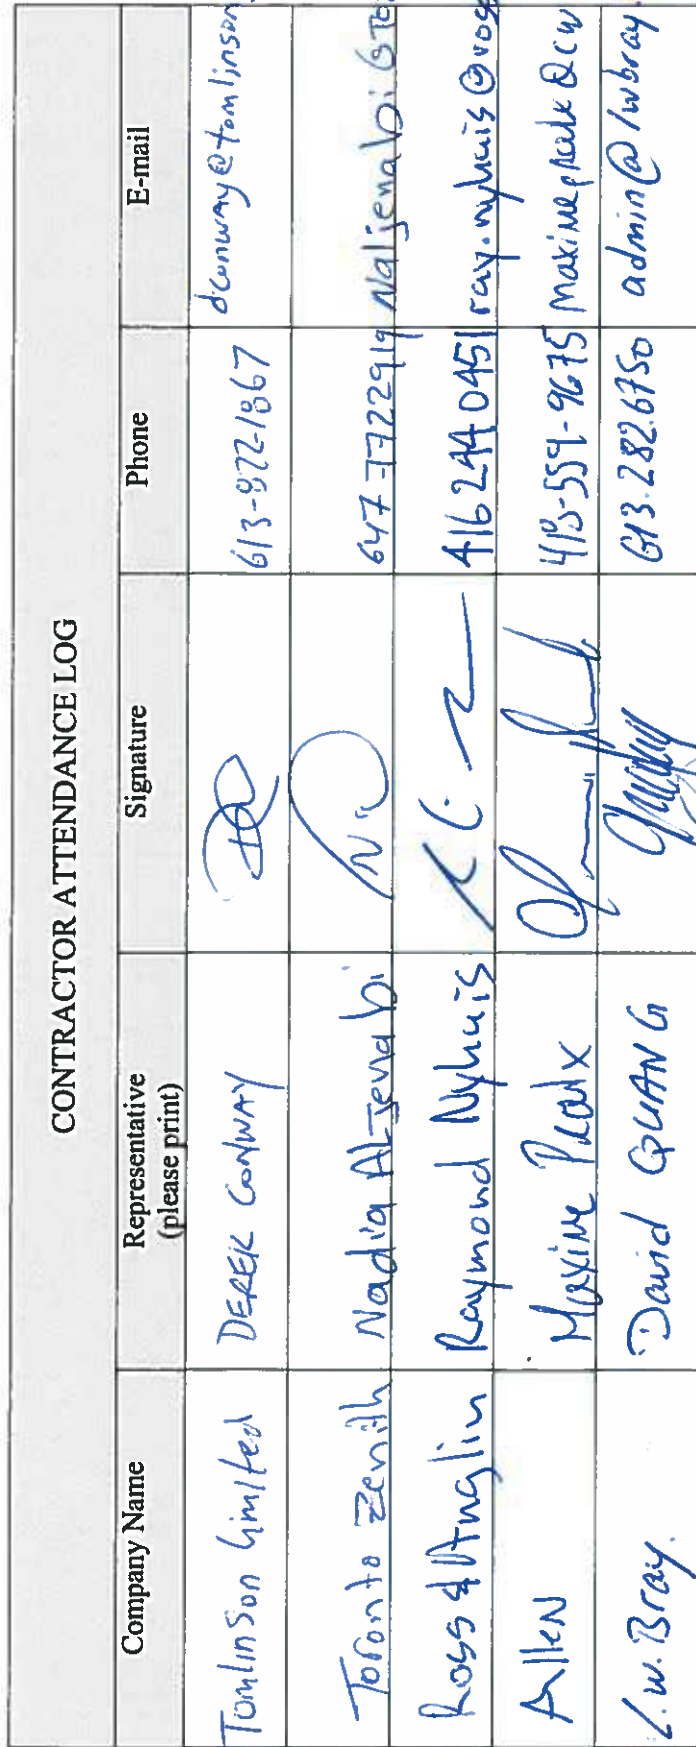 CONTRACTOR ATTENDANCE LOG
Company Name Representative (please print) Signature Phone E-mail
Tomlinson Limited DEREK CONWAY DC 613-822-1867 dconway@tomlinson
Toronto Zenith Nadia 647 7722919
Ross & Anglin Raymond Nyhuis 416 244 0451 ray.nyhuis@ros
Allen Maxime -559-9675
L.W. Bray. David QUANG 613.282.6750 admin@lwbray.